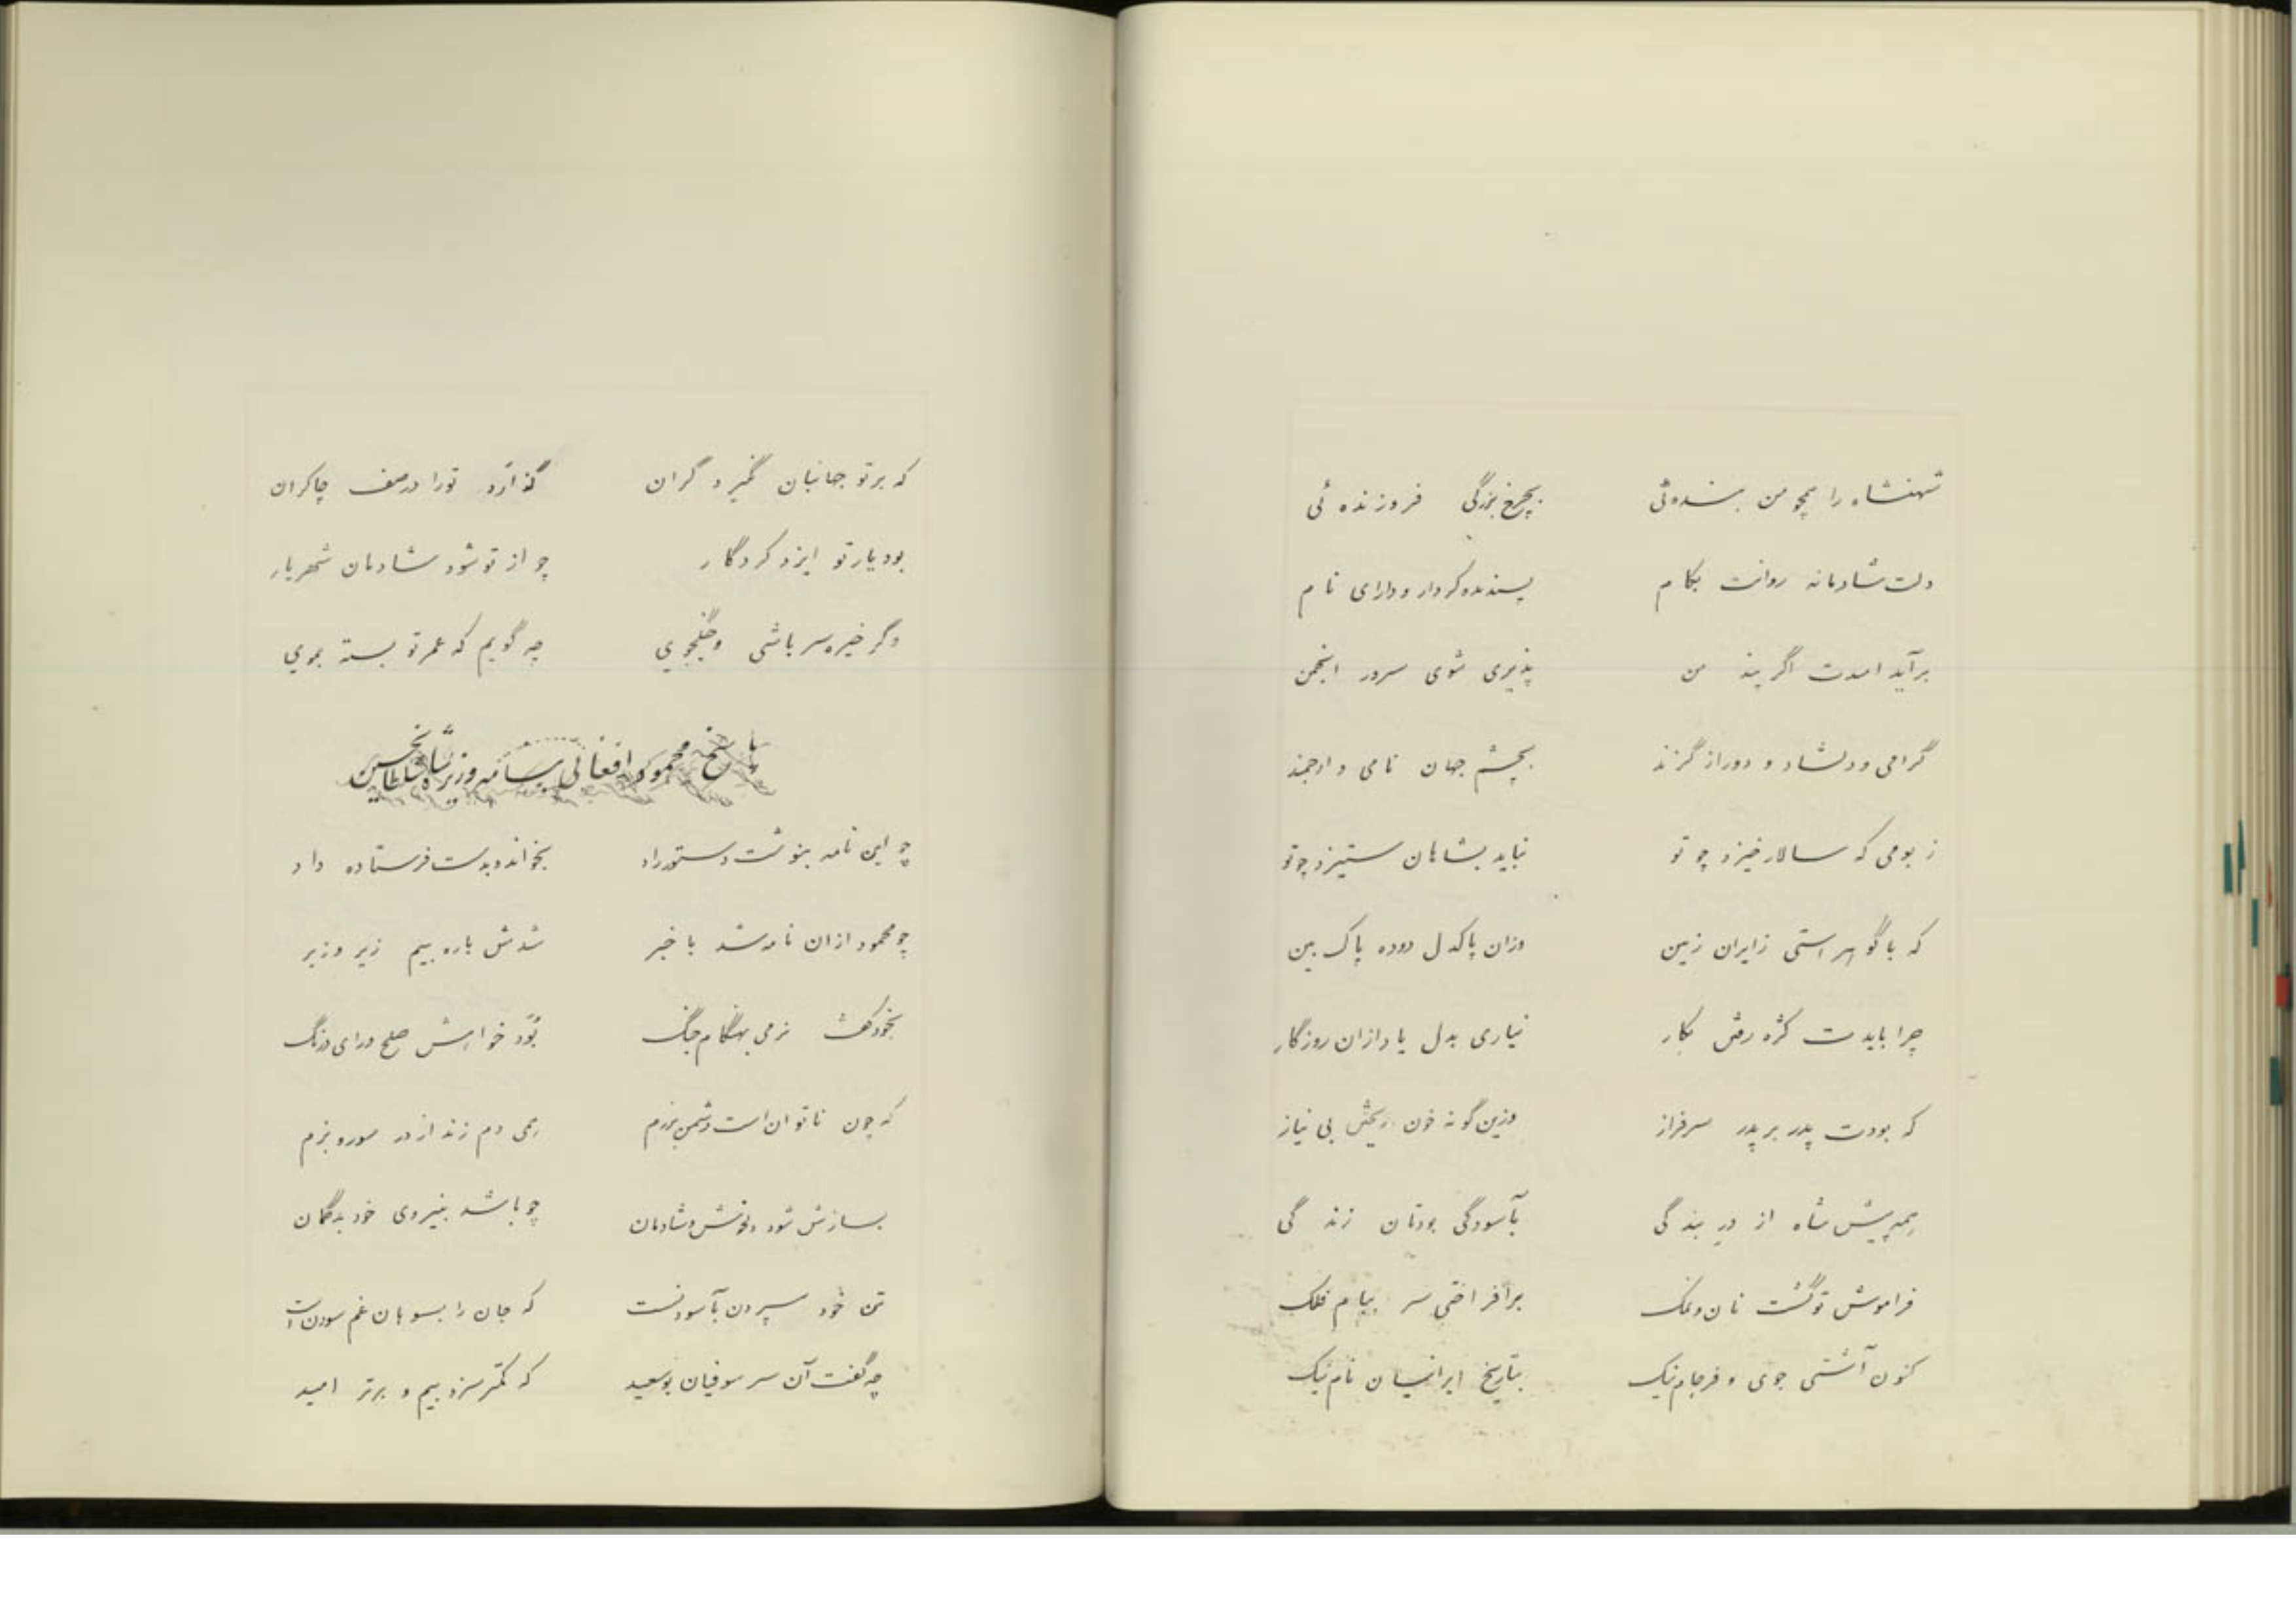 شهنشاه را همچو من بنده‌ئی بچرخ بزرگی فروزنده ئی
دلت شادمانه روانت بکام پسندیده کردار و دارای نام
برآید امیدت اگر پند من پذیری شوی سرور انجمن
گرامی و دلشاد و دور از گزند بچشم جهان نامی و ارجمند
ز بومی که سالار خیزد چو تو نباید بشاهان ستیزد چو تو
که با گوهر استی ز ایران زمین وزان پاکدل دوده پاک بین
چرا بایدت کژه رفتن بکار نیاری بدل یاد ازان روزگار
که بودت پدر بر پدر سرفراز وزین گونه خون ریختن بی نیاز
همه پیش شاه از در بندگی بآسودگی بودتان زندگی
فراموش تو گشت نان و نمک برافراختی سر ببام فلک
کنون آشتی جوی و فرجام نیک بتاریخ ایرانیان نام نیک
که بر تو جهانبان نگیرد گران گذارد تو را در صف چاکران
بود یار تو ایزد کردگار چو از تو شود شادمان شهریار
وگر خیره سر باشی و جنگجوی چه گویم که عمر تو بسته بموی
پاسخ محمود افغانی بنامه وزیر شاه سلطانحسین
چو این نامه بنوشت دستور راد بخواند و بدست فرستاده داد
چو محمود ازان نامه شد با خبر شدش باره بیم زیر و زبر
بخود گفت نرمی بهنگام جنگ بود خواهش صلح و رای درنگ
که چون ناتوان است دشمن برزم همی دم زند از در سور و بزم
بسازش شود دلخوش و شادمان چو باشد بنیروی خود بدگمان
تن خود سپردن بآسودنست که جان را بسوهان غم سودن است
چه گفت آن سر صوفیان بوسعید که کمتر سزد بیم و برتر امید